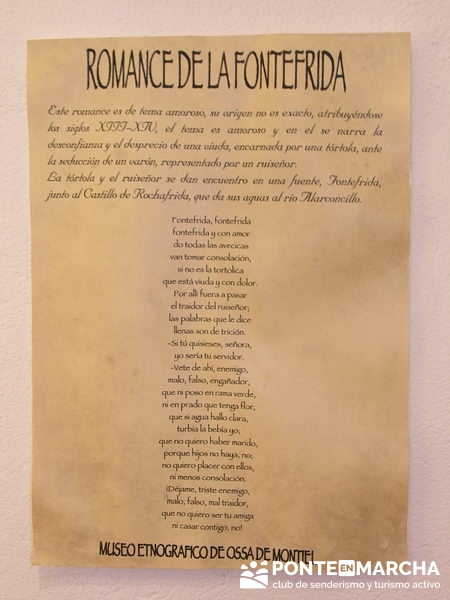 ROMANCE DE LA FONTEFRIDA
Este romance es de tema amoroso, su origen no es exacto, atribuyéndose
los siglos XIII-XIV, el tema es amoroso y en el se narra la
desconfianza y el desprecio de una viuda, encarnada por una tórtola, ante
la seducción de un varón, representado por un ruiseñor.
La tórtola y el ruiseñor se dan encuentro en una fuente, Fontefrida,
junto al Castillo de Rochafrida, que da sus aguas al río Alarconcillo.
Fontefrida, fontefrida
fontefrida y con amor
do todas las avecicas
van tomar consolación,
si no es la tortolica
que está viuda y con dolor.
Por allí fuera a pasar
el traidor del ruiseñor;
las palabras que le dice
llenas son de trición.
-Si tú quisieses, señora,
yo sería tu servidor.
-Vete de ahí, enemigo,
malo, falso, engañador,
que ni poso en rama verde,
ni en prado que tenga flor,
que si agua hallo clara,
turbia la bebía yo;
que no quiero haber marido,
porque hijos no haya, no;
no quiero placer con ellos,
ni menos consolación.
¡Déjame, triste enemigo,
malo, falso, mal traidor,
que no quiero ser tu amiga
ni casar contigo, no!
MUSEO ETNOGRAFICO DE OSSA DE MONTIEL
PONTE EN MARCHA
club de senderismo y turismo activo